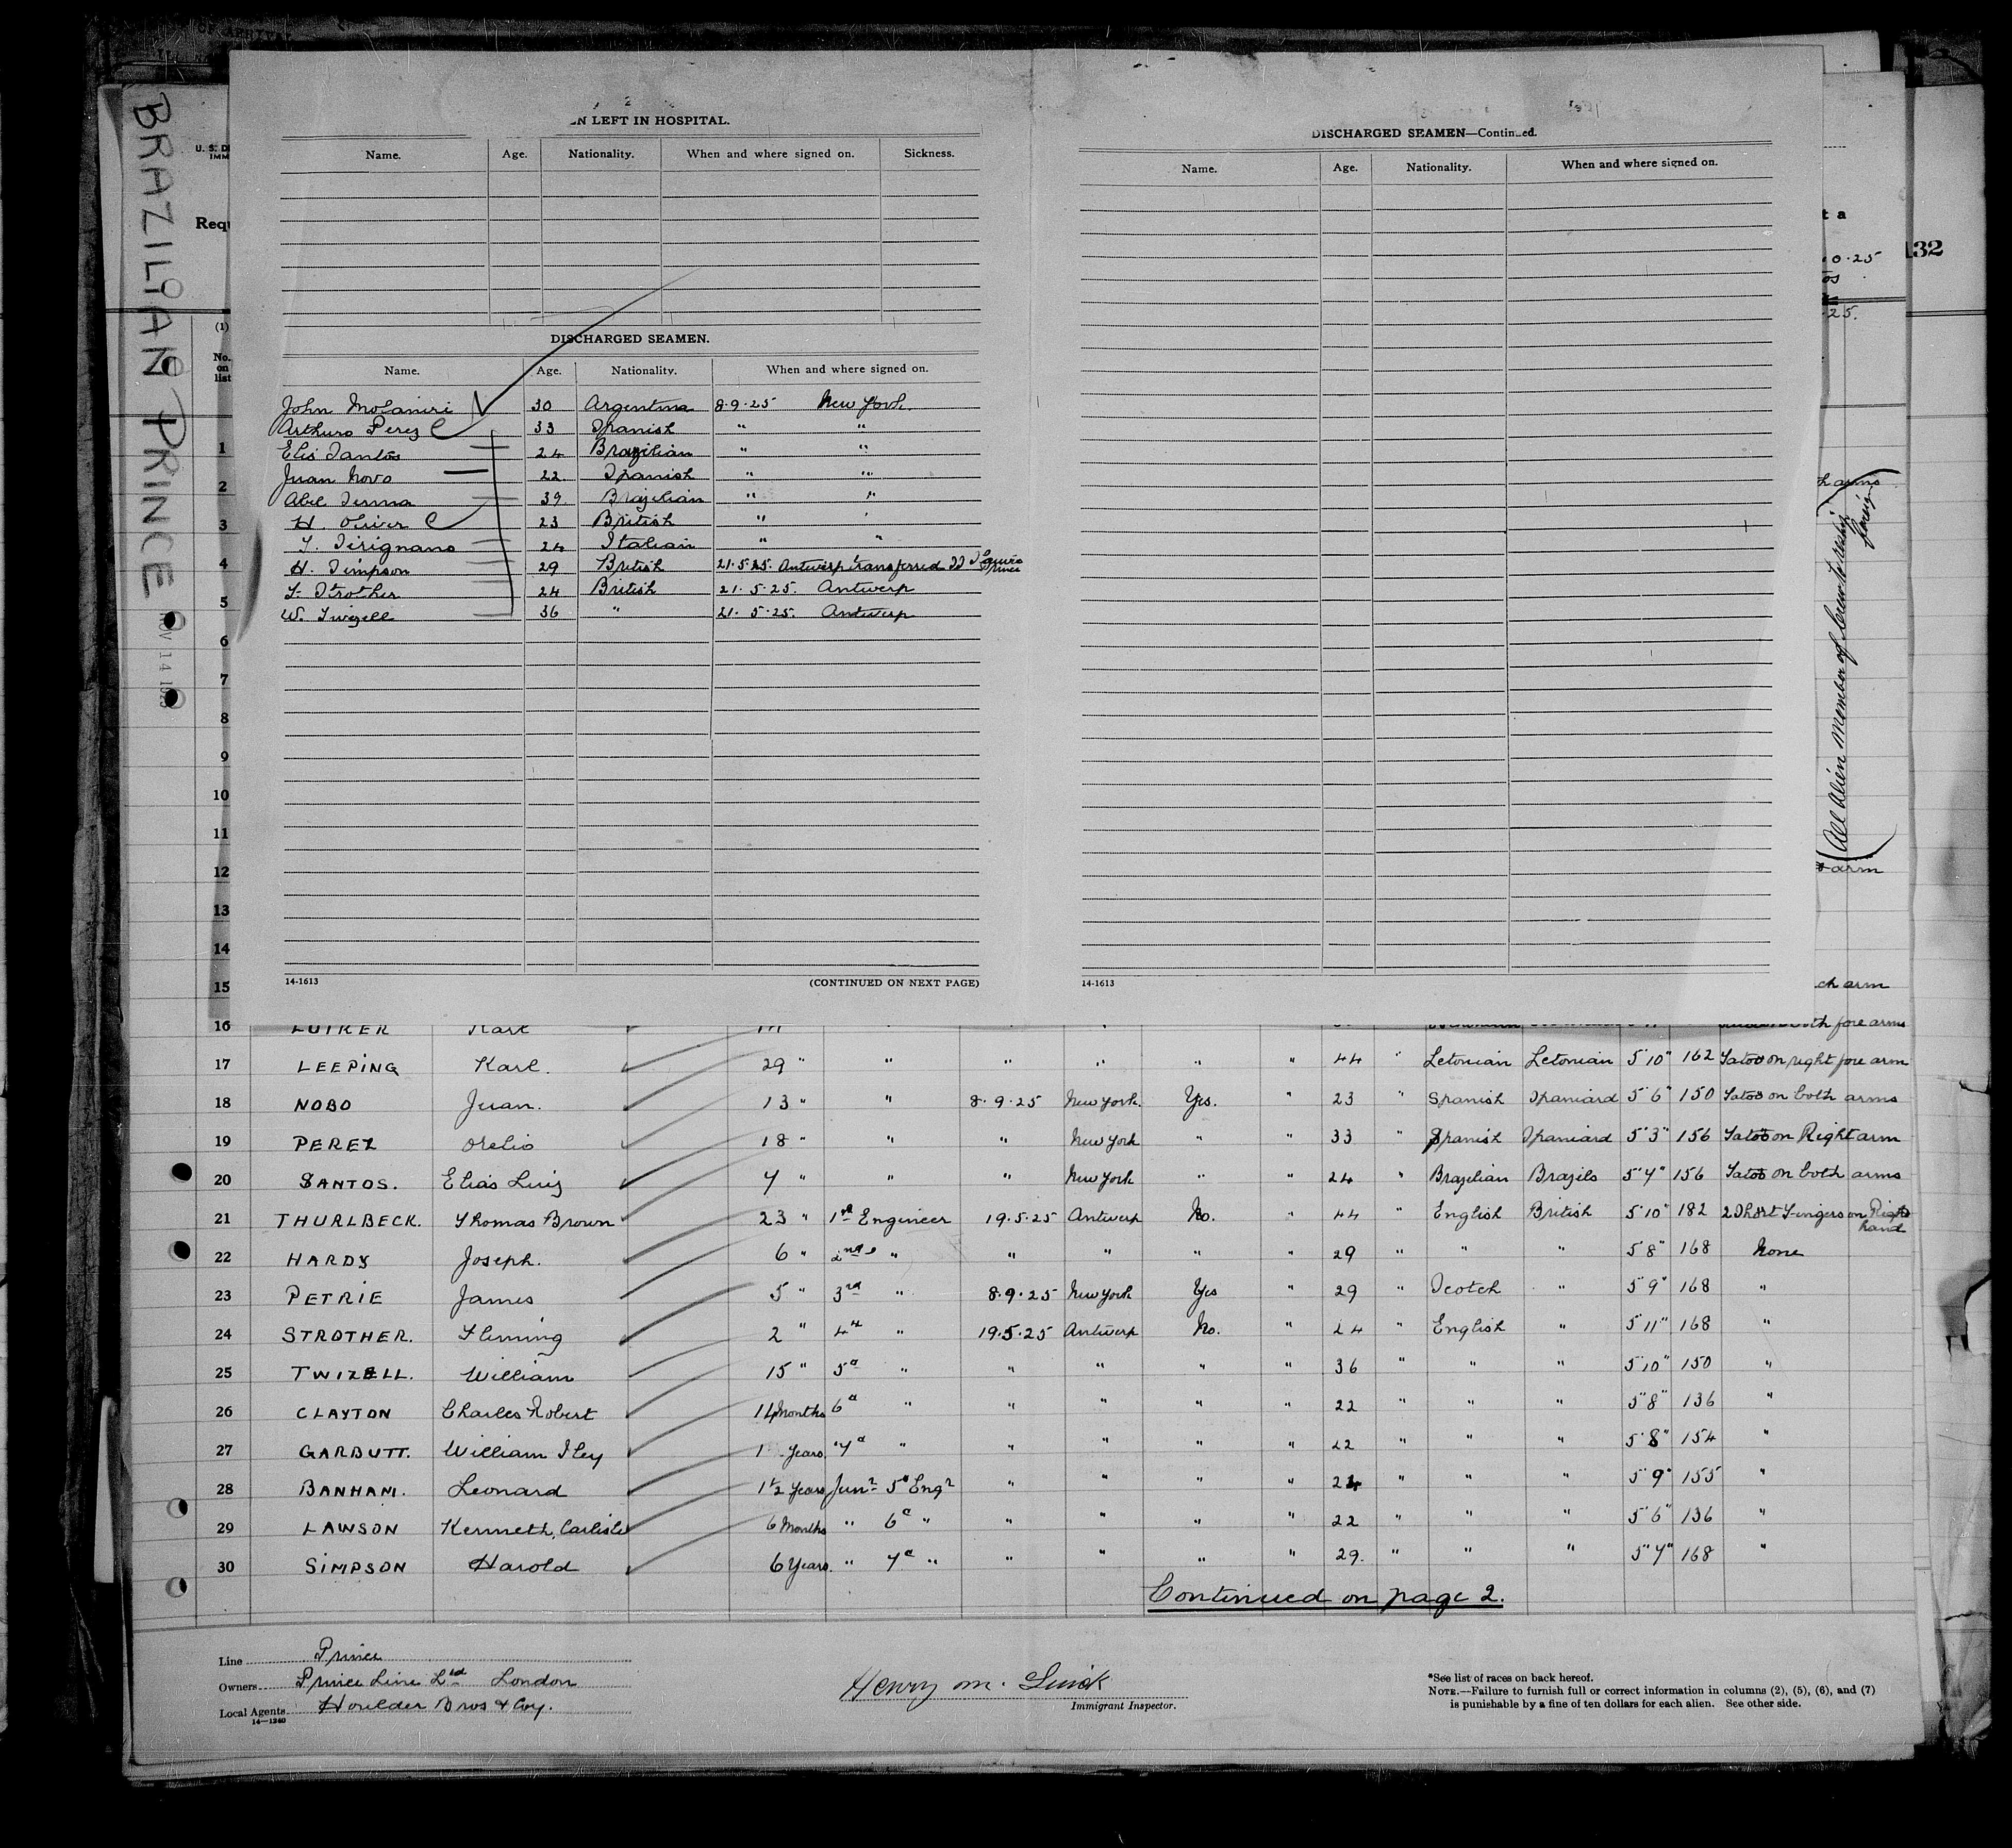 BRAZILIAN PRINCE
LEFT IN HOSPITAL.
Name. Age. Nationality. When and where signed on. Sickness.
DISCHARGED SEAMEN.
Name. Age. Nationality. When and where signed on.
John Molaniri 30 Argentina 8.9.25 New York.
Arthuro Perez 33 Spanish " "
Elis Santos 24 Brazilian " "
Juan Novo 22. Spanish " "
Abel Serma 39. Brazilian " "
H. Oliver 23 British "
T. Sirignano 24 Italian " "
H. Simpson 29 British 21.5.25. Antwerp transferred SS
F. Strother 24 British 21.5.25. Antwerp
W. Twizell 36 " 21.5.25. Antwerp
14-1613 (CONTINUED ON NEXT PAGE)
DISCHARGED SEAMEN—Continued.
Name. Age. Nationality. When and where signed on.
14-1613
U. S. D
IMM
Requ
(1)
No. on list
1
2
3
4
5
6
7
8
9
10
11
12
13
14
15
t a
132
0.25
os
.25.
h arms
(All Alien member of crew to reship foreign)
arm
ch arm
16 LUTKER Karl both fore arms
17 LEEPING Karl. 29 " " " " " " 44 " Letonian Letonian 5'10" 162 Tatoo on right fore arm
18 NOBO Juan. 13 " " 8.9.25 New York. Yes. " 23 " Spanish Spaniard 5'6" 150 Tatoo on both arms
19 PEREZ Orelio 18 " " " New York " " 33 " Spanish Spaniard 5'3" 156 Tatoo on Right arm
20 SANTOS. Elias Luiz 7 " " " New York " " 24 " Brazelian Brazils 5'7" 156 Tatoo on both arms
21 THURLBECK. Thomas Brown 23 " 1st Engineer 19.5.25 Antwerp No. " 44 " English British 5'10" 182 2 Short Fingers on Right hand
22 HARDY Joseph. 6 " 2nd " " " " " 29 " " " 5'8" 168 None
23 PETRIE James 5 " 3rd " 8.9.25 New York Yes " 29 " Scotch " 5'9" 168 "
24 STROTHER. Fleming 2 " 4th " 19.5.25 Antwerp No. " 24 " English " 5'11" 168 "
25 TWIZELL. William 15 " 5th " " " " " 36 " " " 5'10" 150 "
26 CLAYTON Charles Robert 14 Months 6th " " " " " 22 " " " 5'8" 136 "
27 GARBUTT. William Iley 1 Years. 7th " " " " " 22 " " " 5'8" 154 "
28 BANHAM. Leonard 1½ Years Junr 5th Engr " " " " 24 " " " 5'9" 155 "
29 LAWSON Kenneth Carlisle 6 Months " 6th " " " " " 22 " " " 5'6" 136 "
30 SIMPSON Harold 6 Years. " 7th " " " " " 29. " " " 5'7" 168 "
Continued on page 2.
Line Prince
Owners Prince Line Ltd London
Local Agents Houlder Bros & Coy.
14—1240
Henry M.
Immigrant Inspector.
*See list of races on back hereof.
NOTE.—Failure to furnish full or correct information in columns (2), (5), (6), and (7)
is punishable by a fine of ten dollars for each alien. See other side.